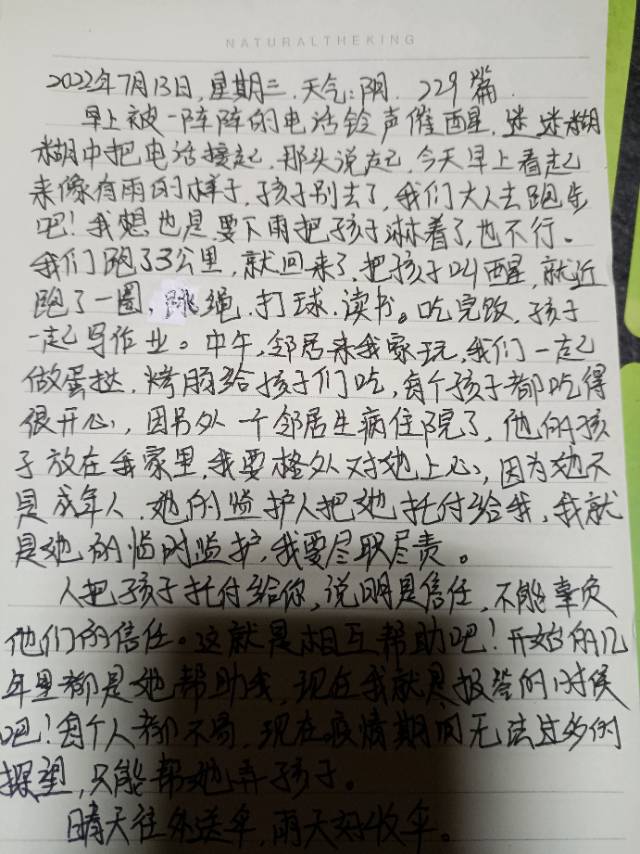 NATURALTHEKING
2022年7月13日,星期三.天气:阴. 229篇.
早上被一阵阵的电话铃声催醒,迷迷糊
糊中把电话接起,那头说起,今天早上看起
来像有雨的样子,孩子别去了,我们大人去跑步
吧!我想也是,要下雨把孩子淋着了,也不行。
我们跑了3公里,就回来了,把孩子叫醒,就近
跑了一圈,跳绳.打球.读书。吃完饭,孩子
一起写作业。中午,邻居来我家玩,我们一起
做蛋挞,烤肠给孩子们吃,每个孩子都吃得
很开心,因另外一个邻居生病住院了,他的孩
子放在我家里,我要格外对她上心,因为她不
是成年人,她的监护人把她托付给我,我就
是她的临时监护,我要尽职尽责。
人把孩子托付给你,说明是信任,不能辜负
他们的信任。这就是相互帮助吧!开始的几
年里都是她帮助我,现在我就是报答的时候
吧!每个人都不易,现在疫情期间无法过多的
探望,只能帮她弄孩子。
晴天往外送伞,雨天好收伞。